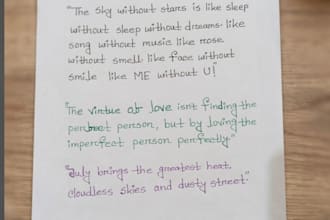 "The sky without stars is like sleep
without sleep without dreams like
song without music like rose
without smell like face without
smile like ME without U!"
"The virtue of love isn't finding the
perfect person, but by loving the
imperfect person perfectly"
"July brings the greatest heat
cloudless skies and dusty street"